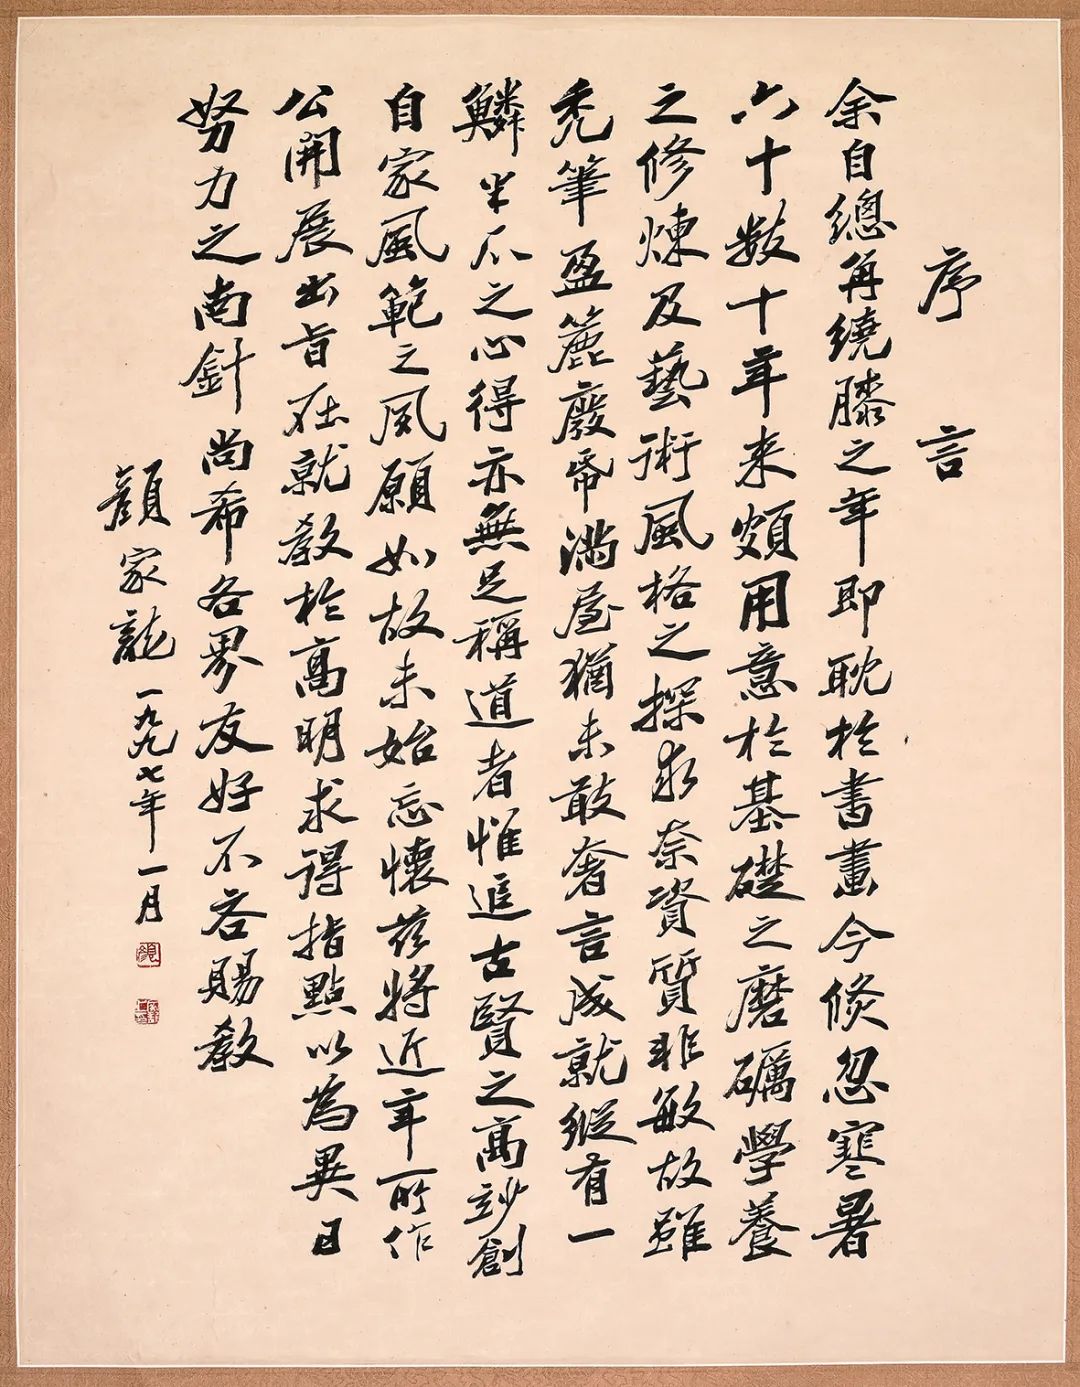 序言
余自總角繞膝之年即耽於書畫今倏忽寒暑
六十數十年來頗用意於基礎之磨礪學養
之修煉及藝術風格之探求奈資質非敏故雖
禿筆盈簏廢帋滿屋猶未敢奢言成就縱有一
鱗半爪之心得亦無足稱道者惟追古賢之高妙創
自家風範之夙願如故未始忘懷茲將近年所作
公開展出旨在就教於高明求得指點以為異日
努力之南針尚希各界友好不吝賜教
顏家龍一九九七年一月